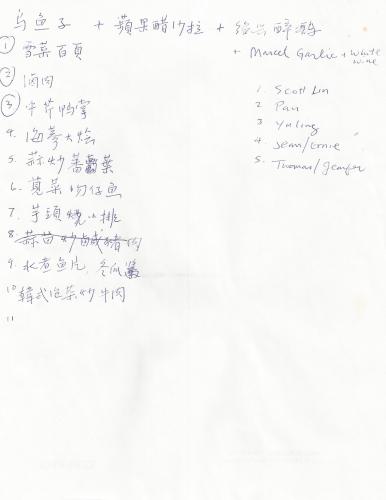 乌鱼子 + 蘋果醋沙拉 + 绍兴醉鸡
+ Marcel Garlic + White wine
① 雪菜百頁
② 卤肉
③ 牛芹鸭掌
4. 海蔘大烩
5. 蒜炒蕃葉
6. 莧菜吻仔鱼
7. 芋頭燒小排
8. 蒜苗炒鹹豬肉
9. 水煮鱼片, 冬瓜
10 韓式泡菜炒牛肉
11
1. Scott Lin
2 Pan
3 Yuling
4 Jean/Ernie
5. Thomas/Jenifer